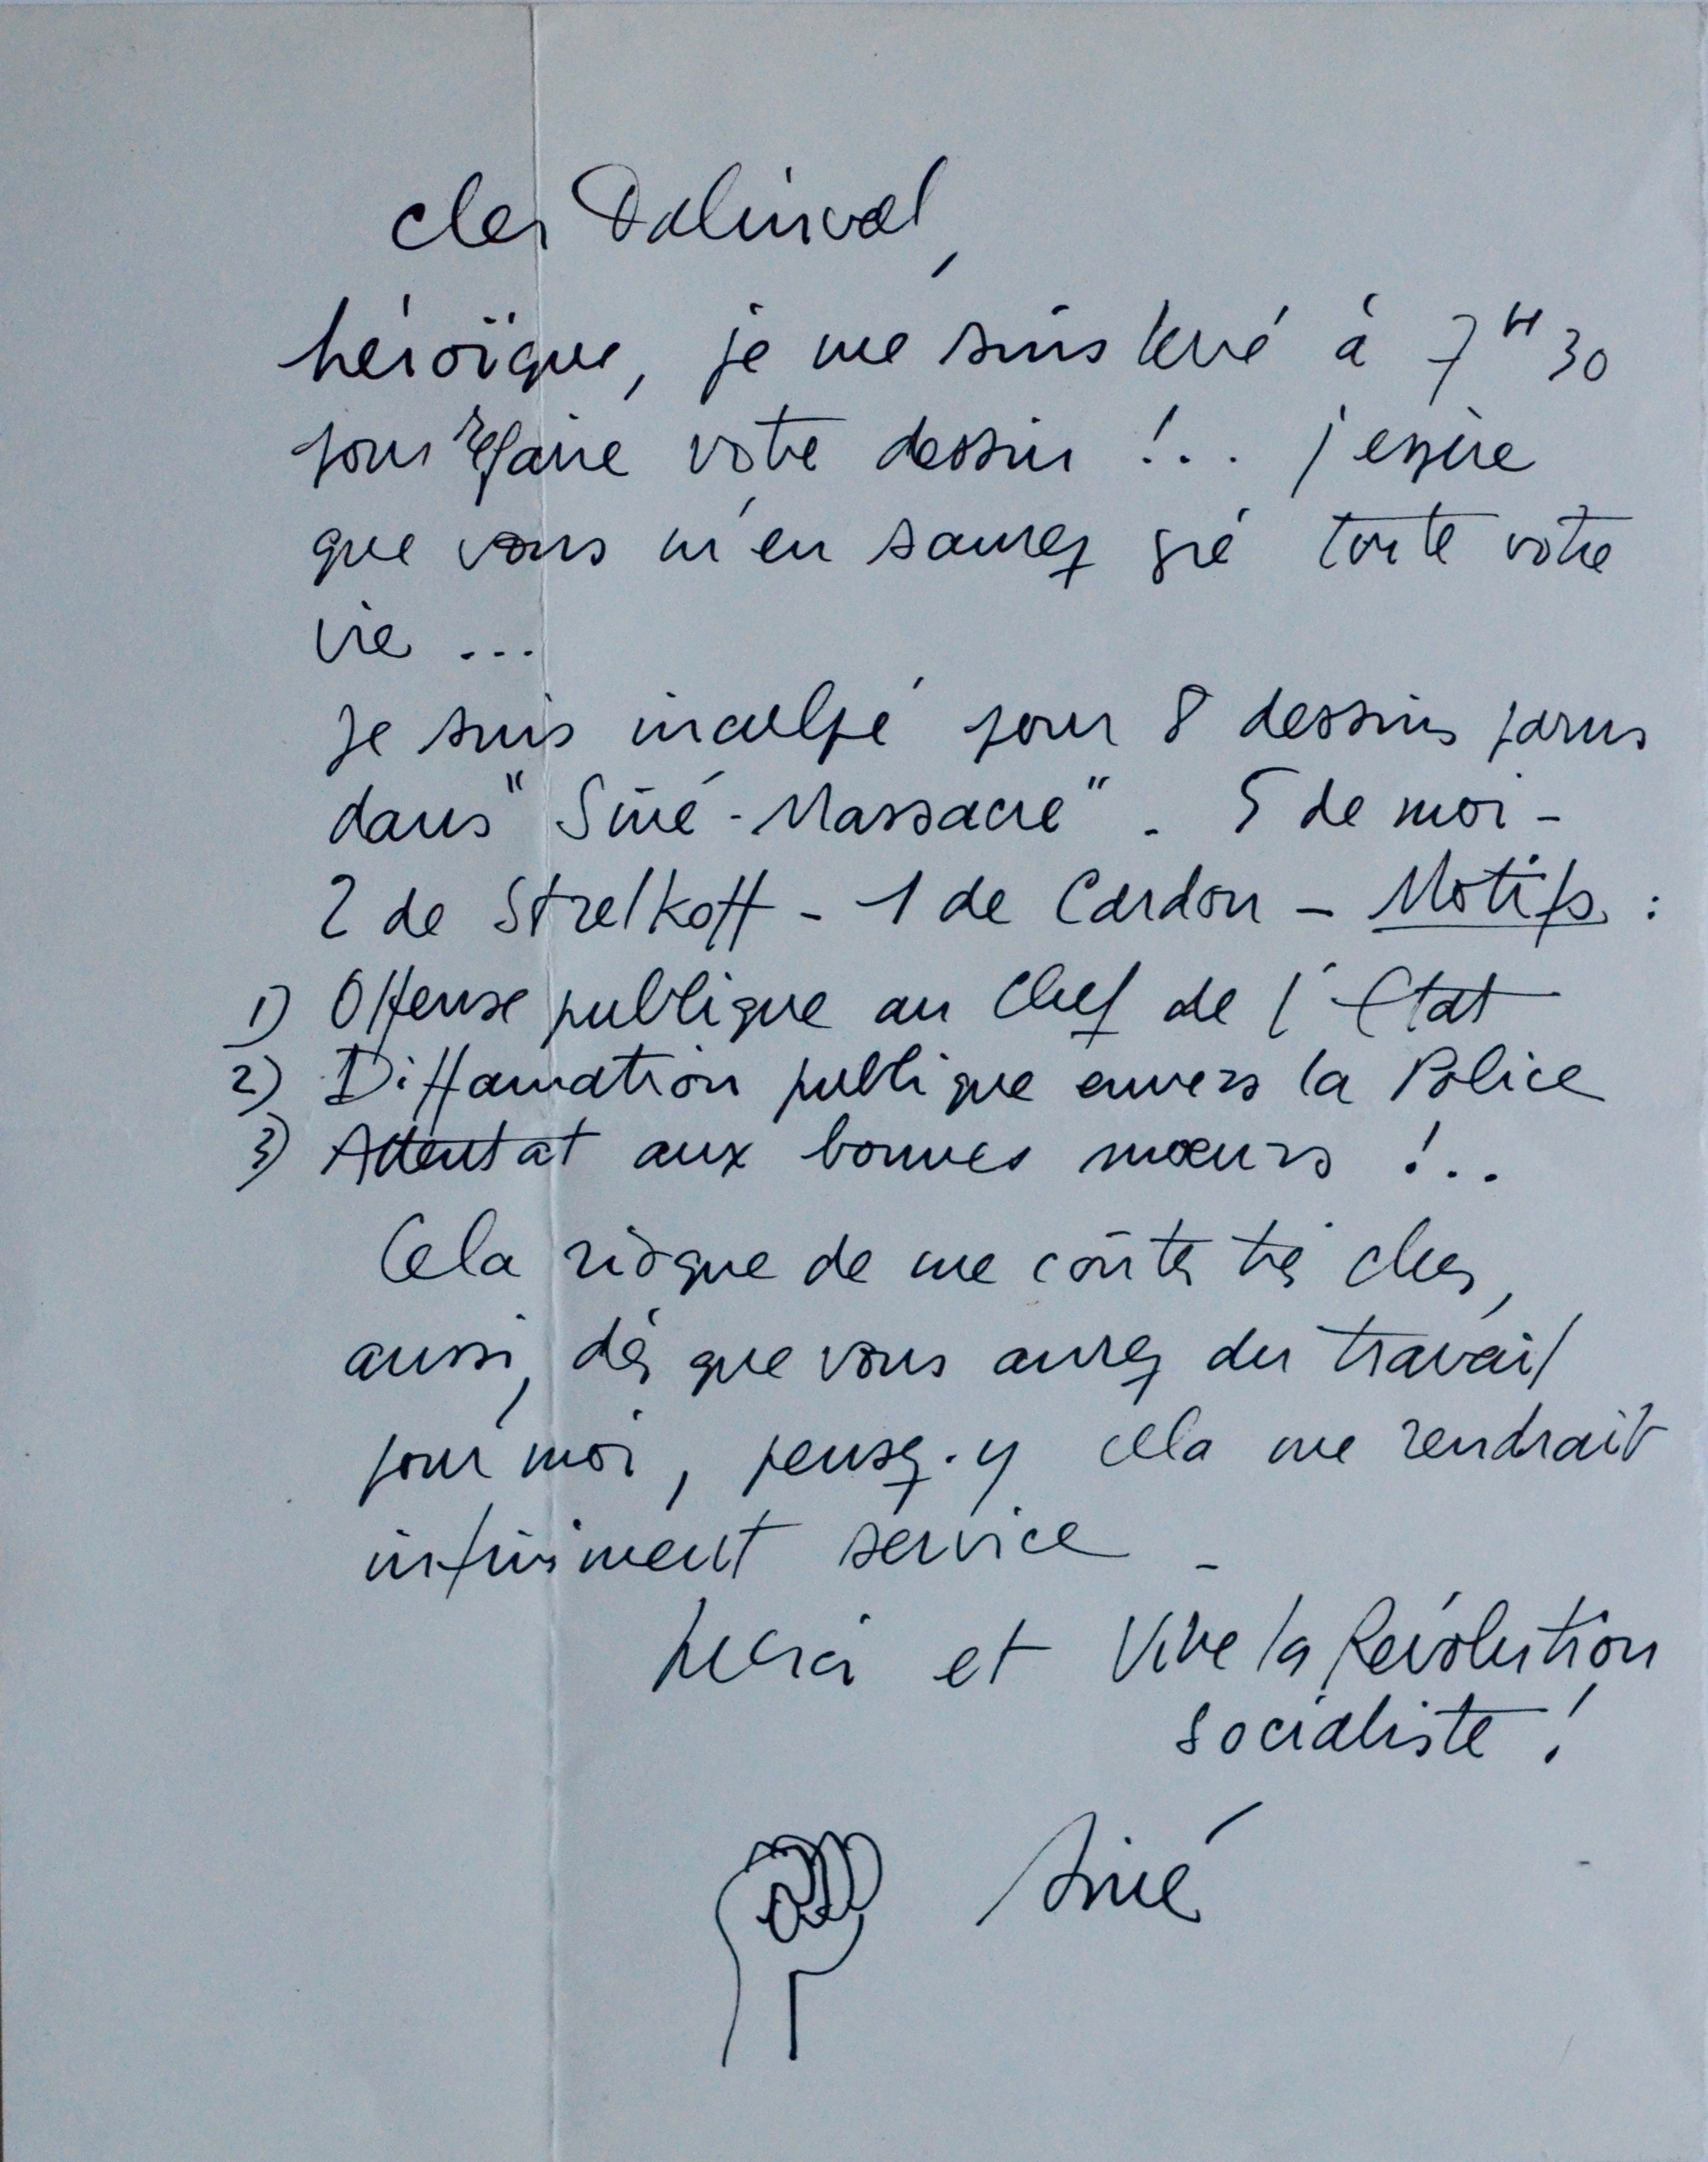 cher Dalinval,
héroïque, je me suis levé à 7H30
pour refaire votre dessin !.. j'espère
que vous m'en saurez gré toute votre
vie ...
je suis inculpé pour 8 dessins parus
dans "Siné-Massacre". 5 de moi -
2 de Strelkoff - 1 de Cardon - Motifs :
1) Offense publique au Chef de l'Etat
2) Diffamation publique envers la Police
3) Attentat aux bonnes mœurs !..
Cela risque de me coûter très cher,
aussi, dès que vous aurez du travail
pour moi, pensez-y cela me rendrait
infiniment service -
Merci et Vive la Révolution
socialiste !
Siné